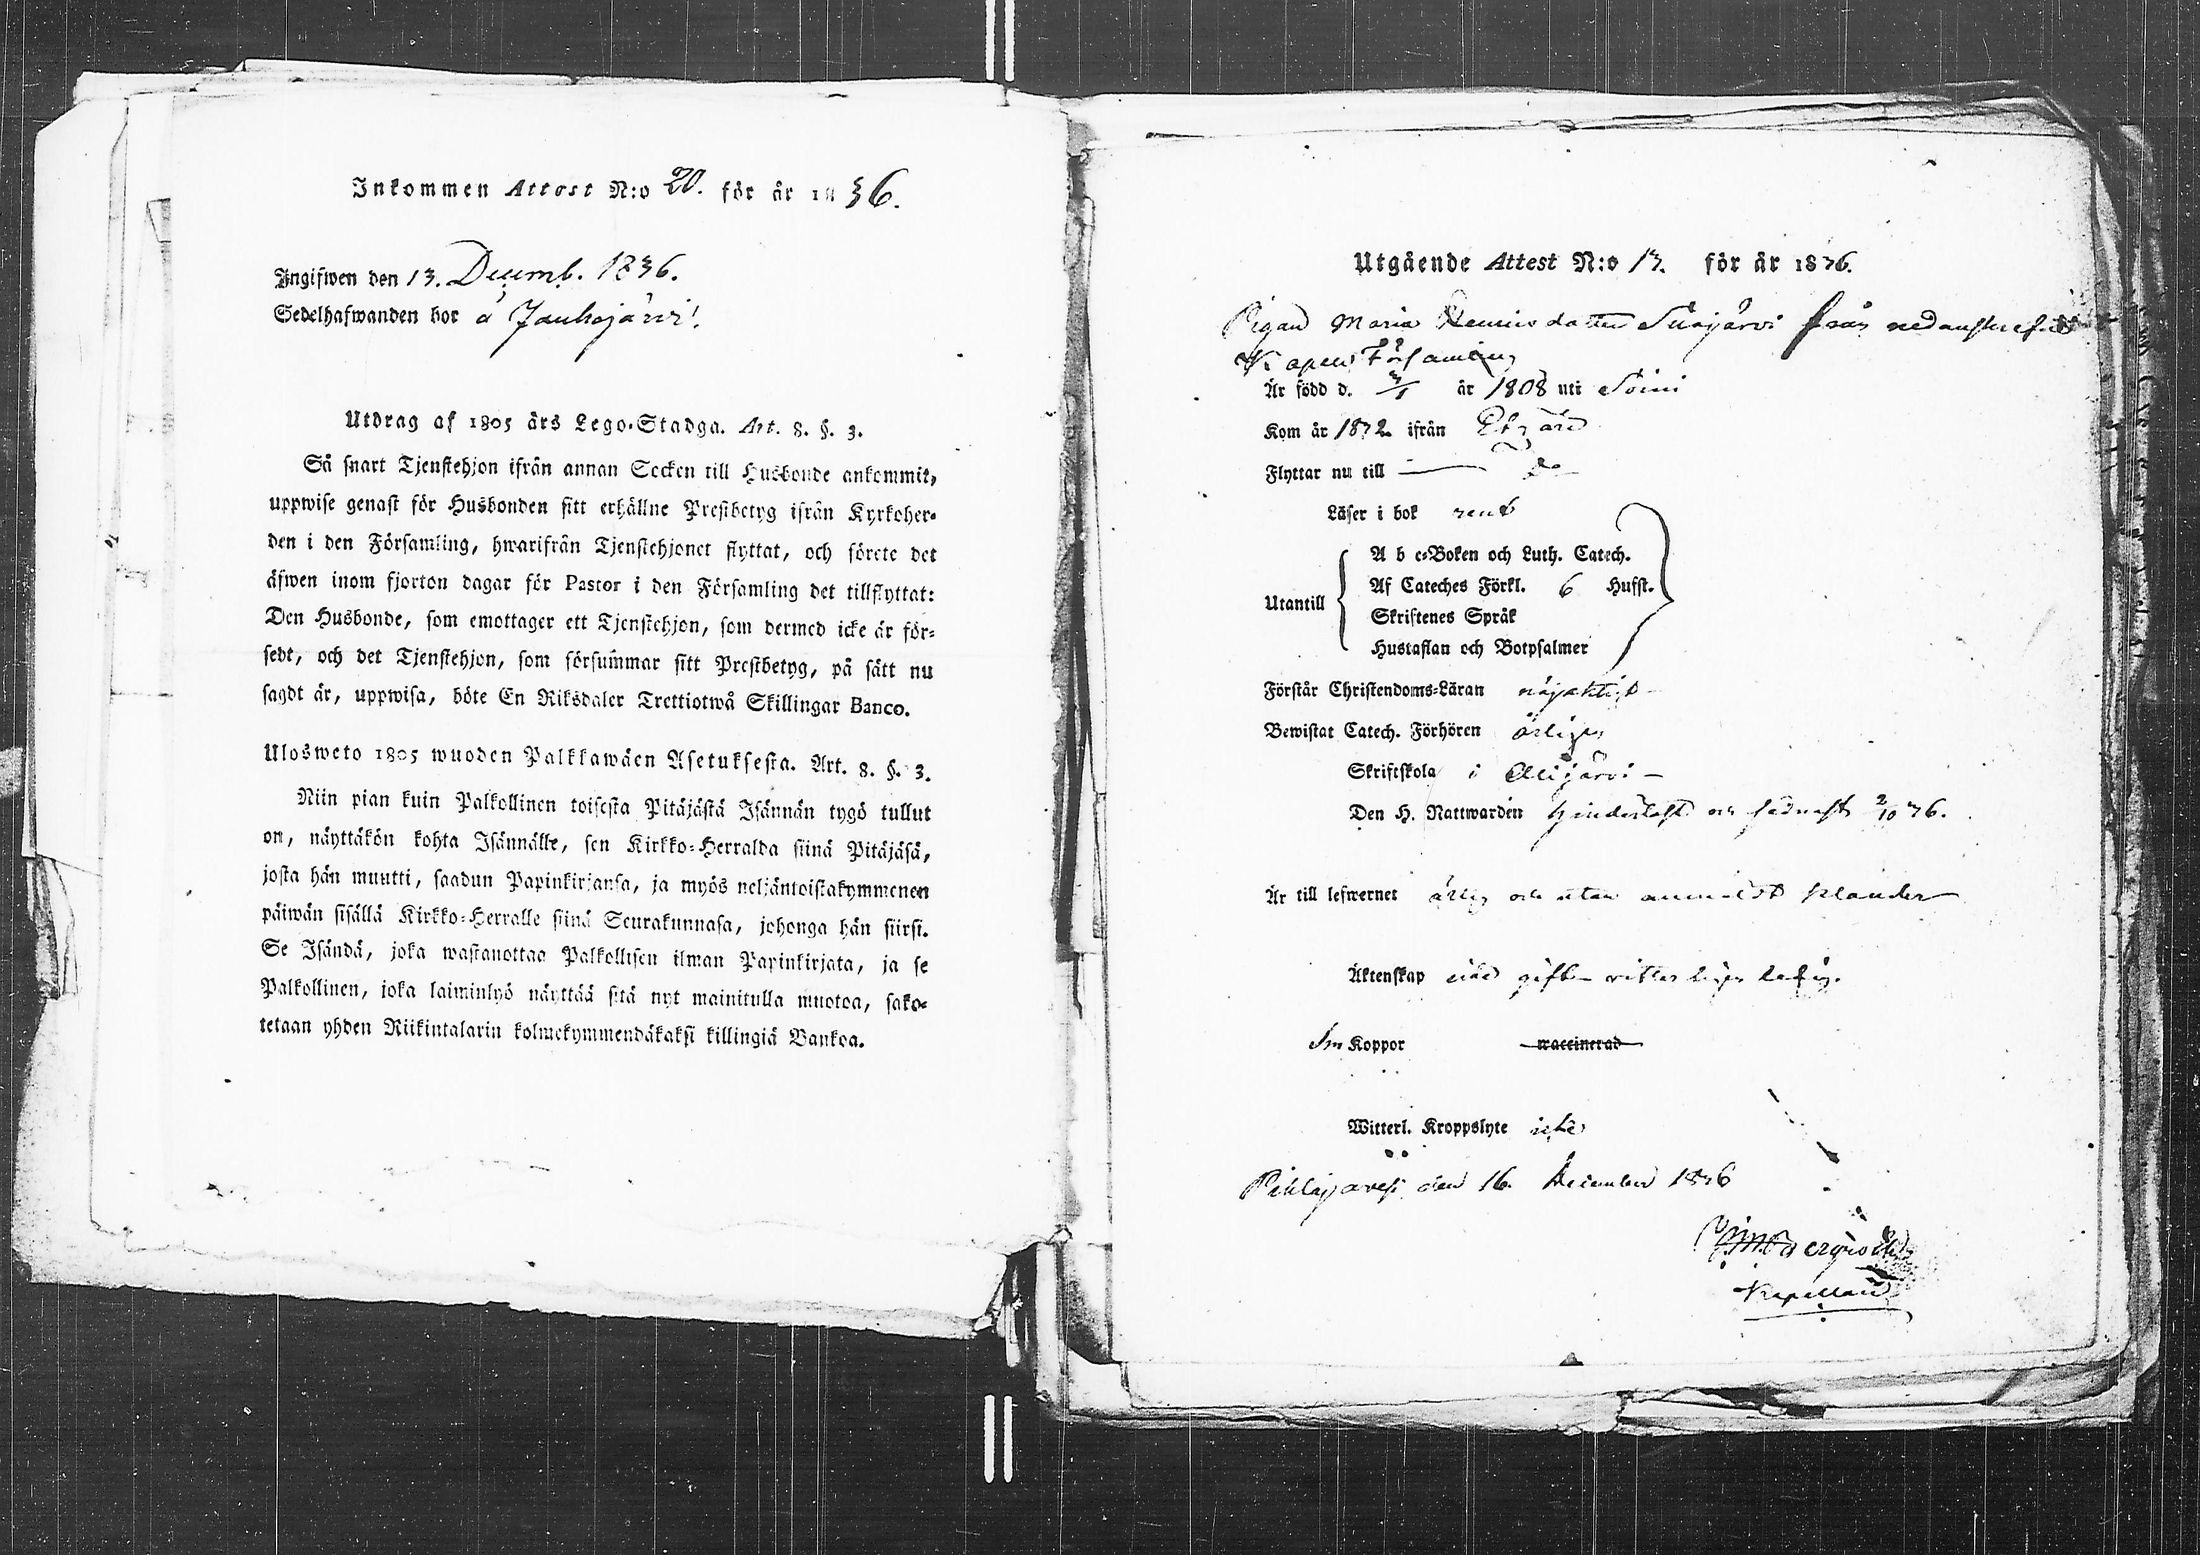 Inkommen Attest N:o 20. för år 1836.
Angifwen den 13. Decemb. 1836.
Sedelhafwanden bor å Jauhojärvi.
Utdrag af 1805 års Lego-Stadga. Art. 8. §. 3.
Så snart Tjenstehjon ifrån annan Socken till Husbonde ankommit,
uppwise genast för Husbonden sitt erhållne Prestbetyg ifrån Kyrkoher-
den i den Församling, hwarifrån Tjenstehjonet flyttat, och förete det
äfwen inom fjorton dagar för Pastor i den Församling det tillflyttat:
Den Husbonde, som emottager ett Tjenstehjon, som dermed icke är för-
sedt, och det Tjenstehjon, som försummar sitt Prestbetyg, på sätt nu
sagdt är, uppwisa, böte En Riksdaler Trettiotwå Skillingar Banco.
Ulosweto 1805 wuoden Palkkawäen Asetuksesta. Art. 8. §. 3.
Niin pian kuin Palkollinen toisesta Pitäjästä Isännän tygö tullut
on, näyttäkön kohta Isännälle, sen Kirkko-Herralda siinä Pitäjäsä,
josta hän muutti, saadun Papinkirjansa, ja myös neljäntoistakymmenen
päiwän sisällä Kirkko-Herralle siinä Seurakunnasa, johonga hän siirsi.
Se Isändä, joka wastanottaa Palkollisen ilman Papinkirjata, ja se
Palkollinen, joka laiminlyö näyttää sitä nyt mainitulla muotoa, sako-
tetaan yhden Riikintalarin kolmekymmendäkaksi killingiä Bankoa.
Utgående Attest N:o 13. för år 1836.
Pigan Maria dotter från
Kapell Församling
Är född d. 3/1 år 1808 uti Soini
Kom år 1832 ifrån Etzäri
Flyttar nu till — do
Läser i bok rent
Utantill
A b c-Boken och Luth. Catech.
Af Cateches Förkl. 6 Hufst.
Skriftenes Språk
Hustaflan och Botpsalmer
Förstår Christendoms-Läran nöjaktigt
Bewistat Catech. Förhören årligen
Skriftskola i Alajärvi
Den H. Nattwarden och sednast 2/10 36.
Är till lefwernet ärlig och utan anmäldt klander
Äktenskap ledig.
Koppor waccinerad
Witterl. Kroppslyte icke
Pihlajavesi den 16. December 1836
Kapellan